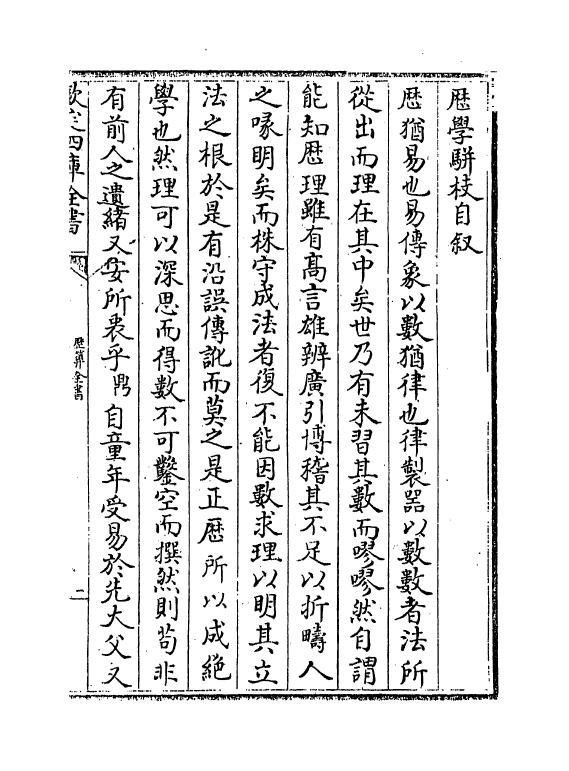 厯學駢枝自叙
厯猶易也易傳象以數猶律也律製器以數數者法所
從出而理在其中矣世乃有未習其數而嘐嘐然自謂
能知厯理雖有髙言雄辨廣引博稽其不足以折疇人
之喙明矣而株守成法者復不能因數求理以明其立
法之根於是有沿誤傳訛而莫之是正厯所以成絶
學也然理可以深思而得數不可鑿空而撰然則茍非
有前人之遺緒又安所衷乎鼎自童年受易於先大父又
欽定四庫全書
厯算全書
二